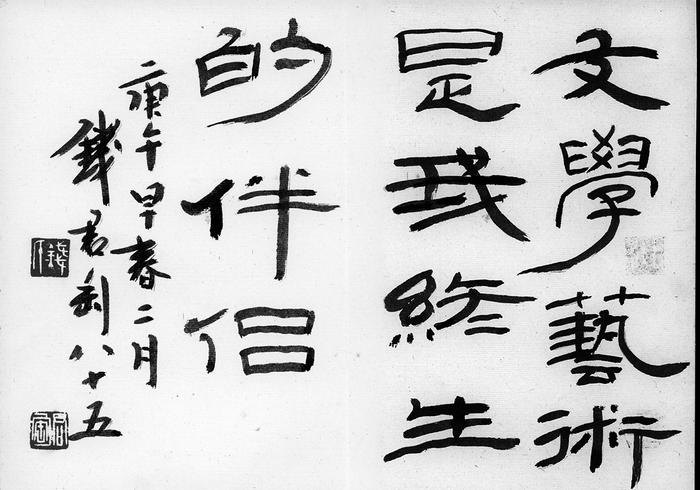 文學藝術
是我終生
的伴侶
庚午早春二月
錢君匋八十五